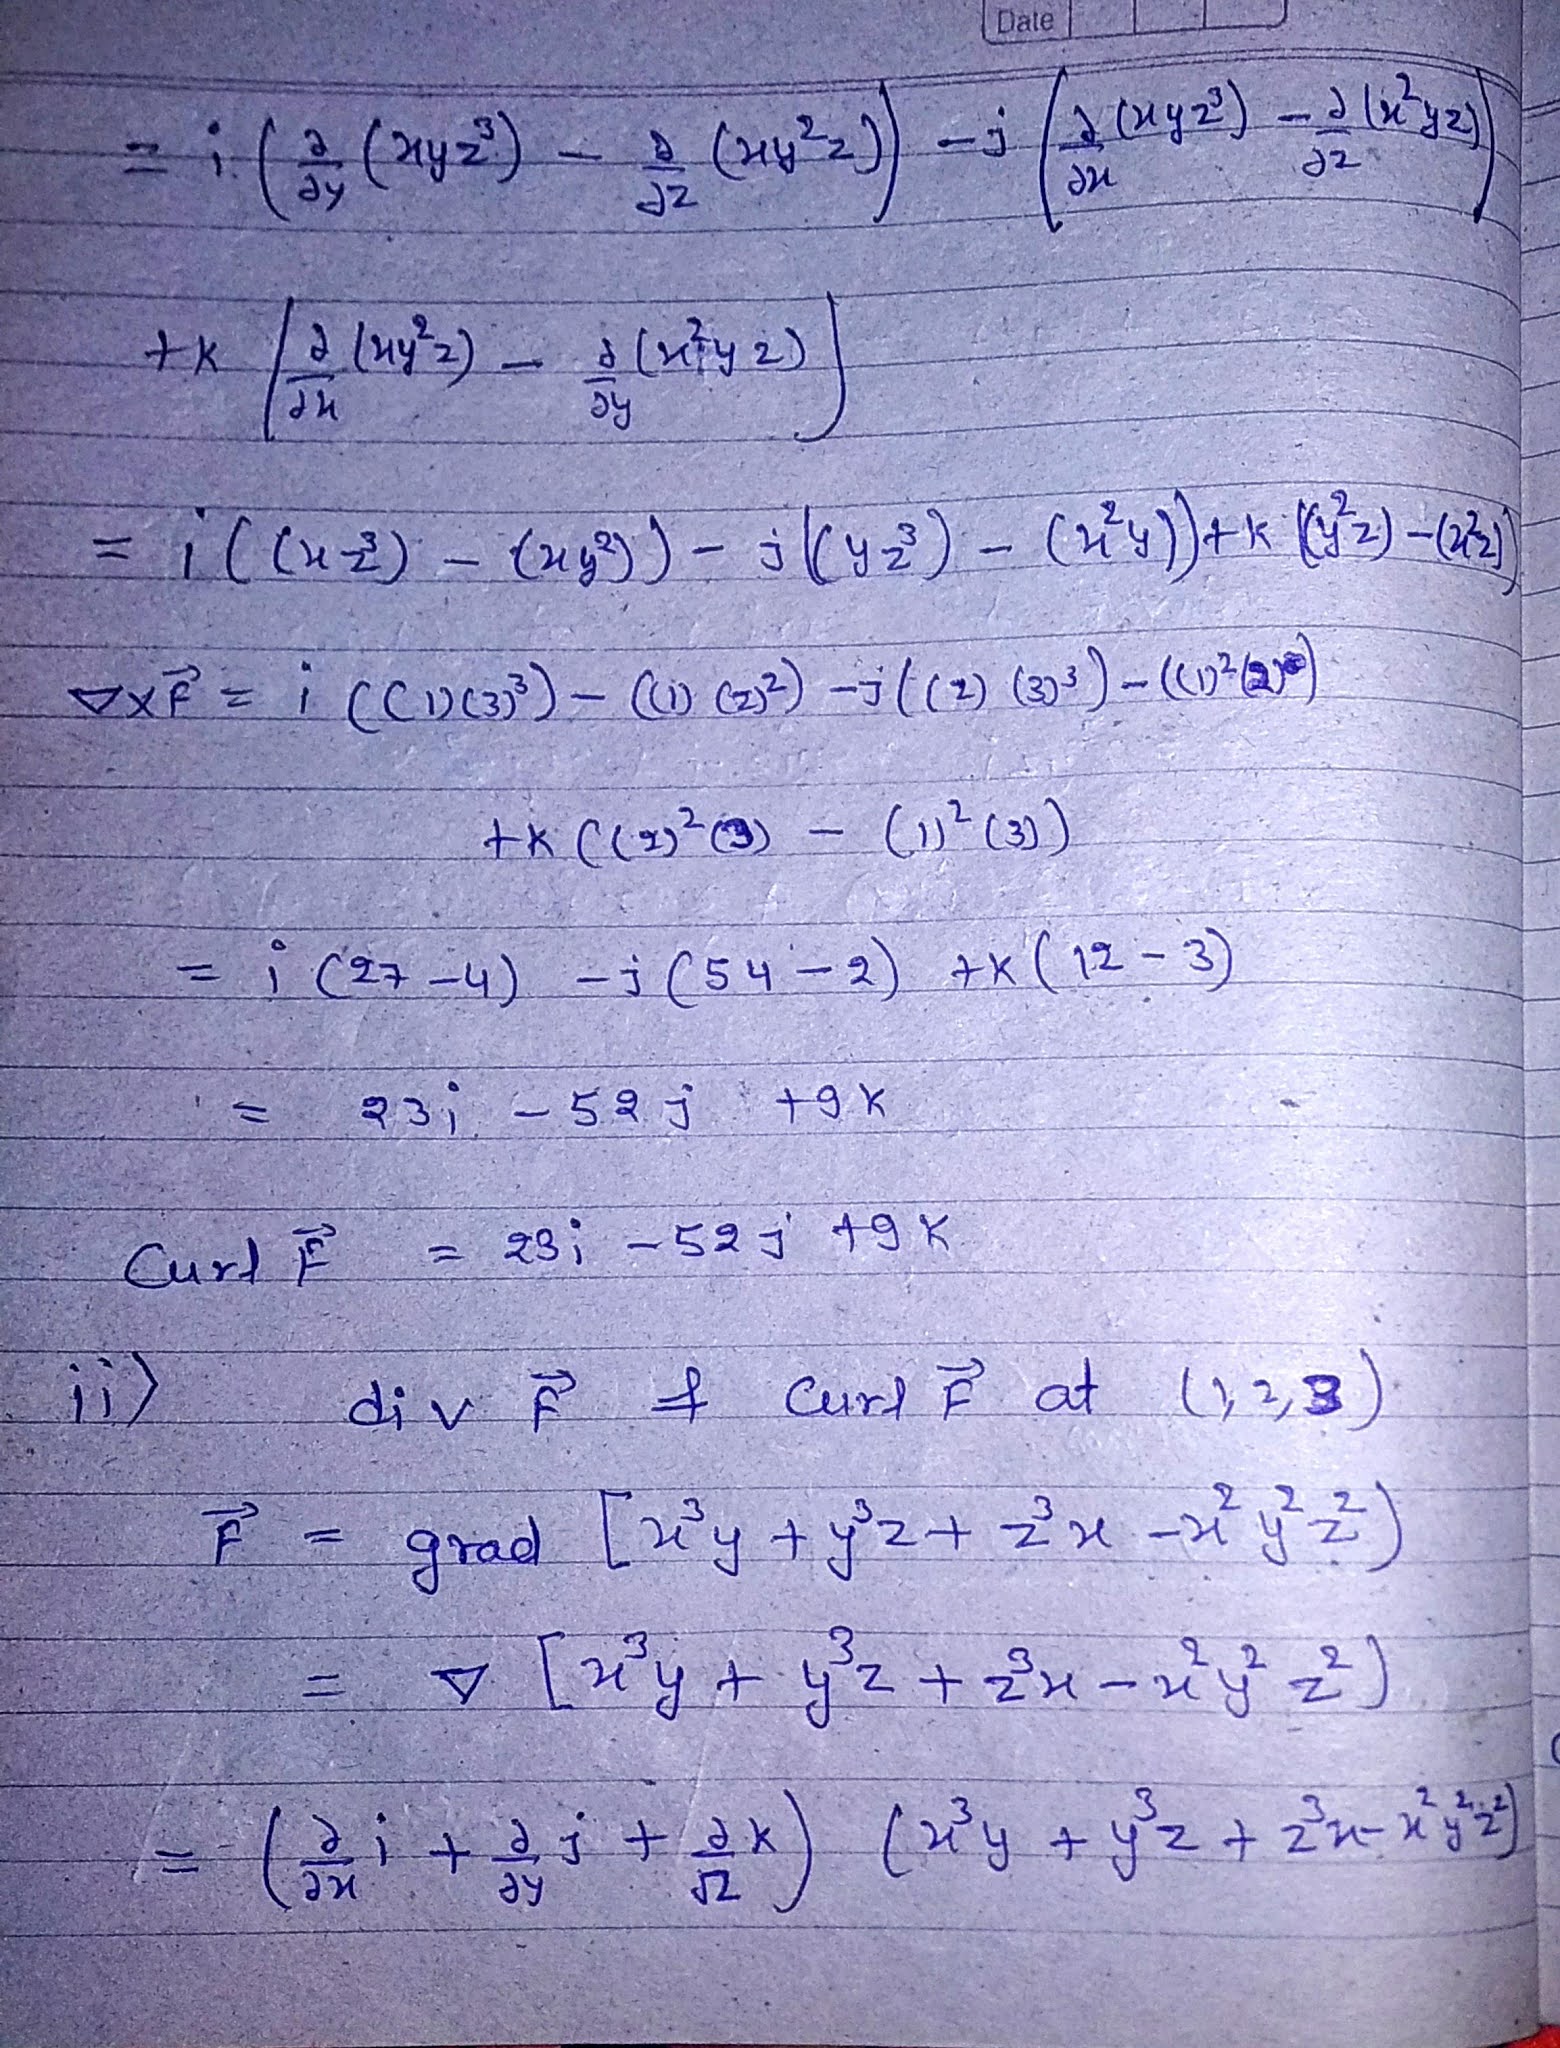 Date
= i (∂/∂y (xyz³) – ∂/∂z (xy²z)) – j (∂/∂x (xyz³) – ∂/∂z (x²yz))
+k [∂/∂x (xy²z) – ∂/∂y (x²yz)]
= i ((xz³) – (xy²)) – j((yz³) – (x²y)) + k ((y²z) – (x²z))
∇×F⃗ = i (((1)(3)³) – ((1) (2)²) – j((2) (3)³) – ((1)²(2))
+k ((2)² (3) – (1)² (3))
= i (27 – 4) – j (54 – 2) +k (12 – 3)
= 23i – 52j +9k
Curl F⃗ = 23i – 52j +9k
ii) div F⃗ & Curl F⃗ at (1,2,3)
F⃗ = grad [x³y + y³z + z³x – x²y²z²)
= ∇ [x³y + y³z + z³x – x²y²z²)
= (∂/∂x i + ∂/∂y j + ∂/∂z k) (x³y + y³z + z³x – x²y²z²)